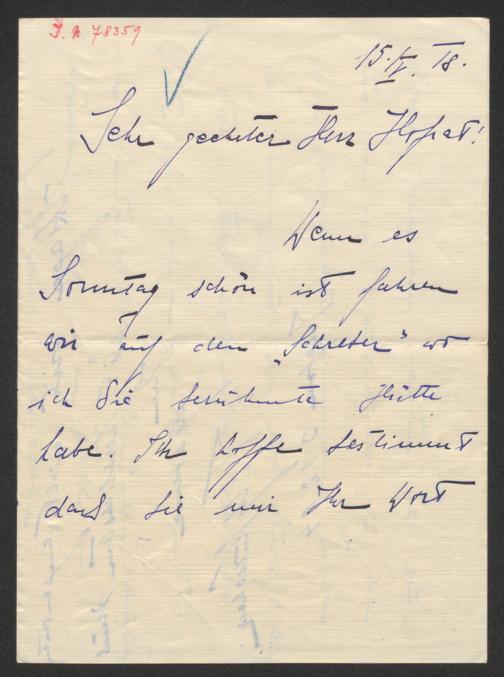 I. N. 78359
15. IV. 18.
Sehr geehrter Herr Hofrat!
Wenn es
Sonntag schön ist fahren
wir auf den „Schreber“ wo
ich die berühmte Hütte
habe. Ich hoffe bestimmt
daß Sie mir Ihr Wort